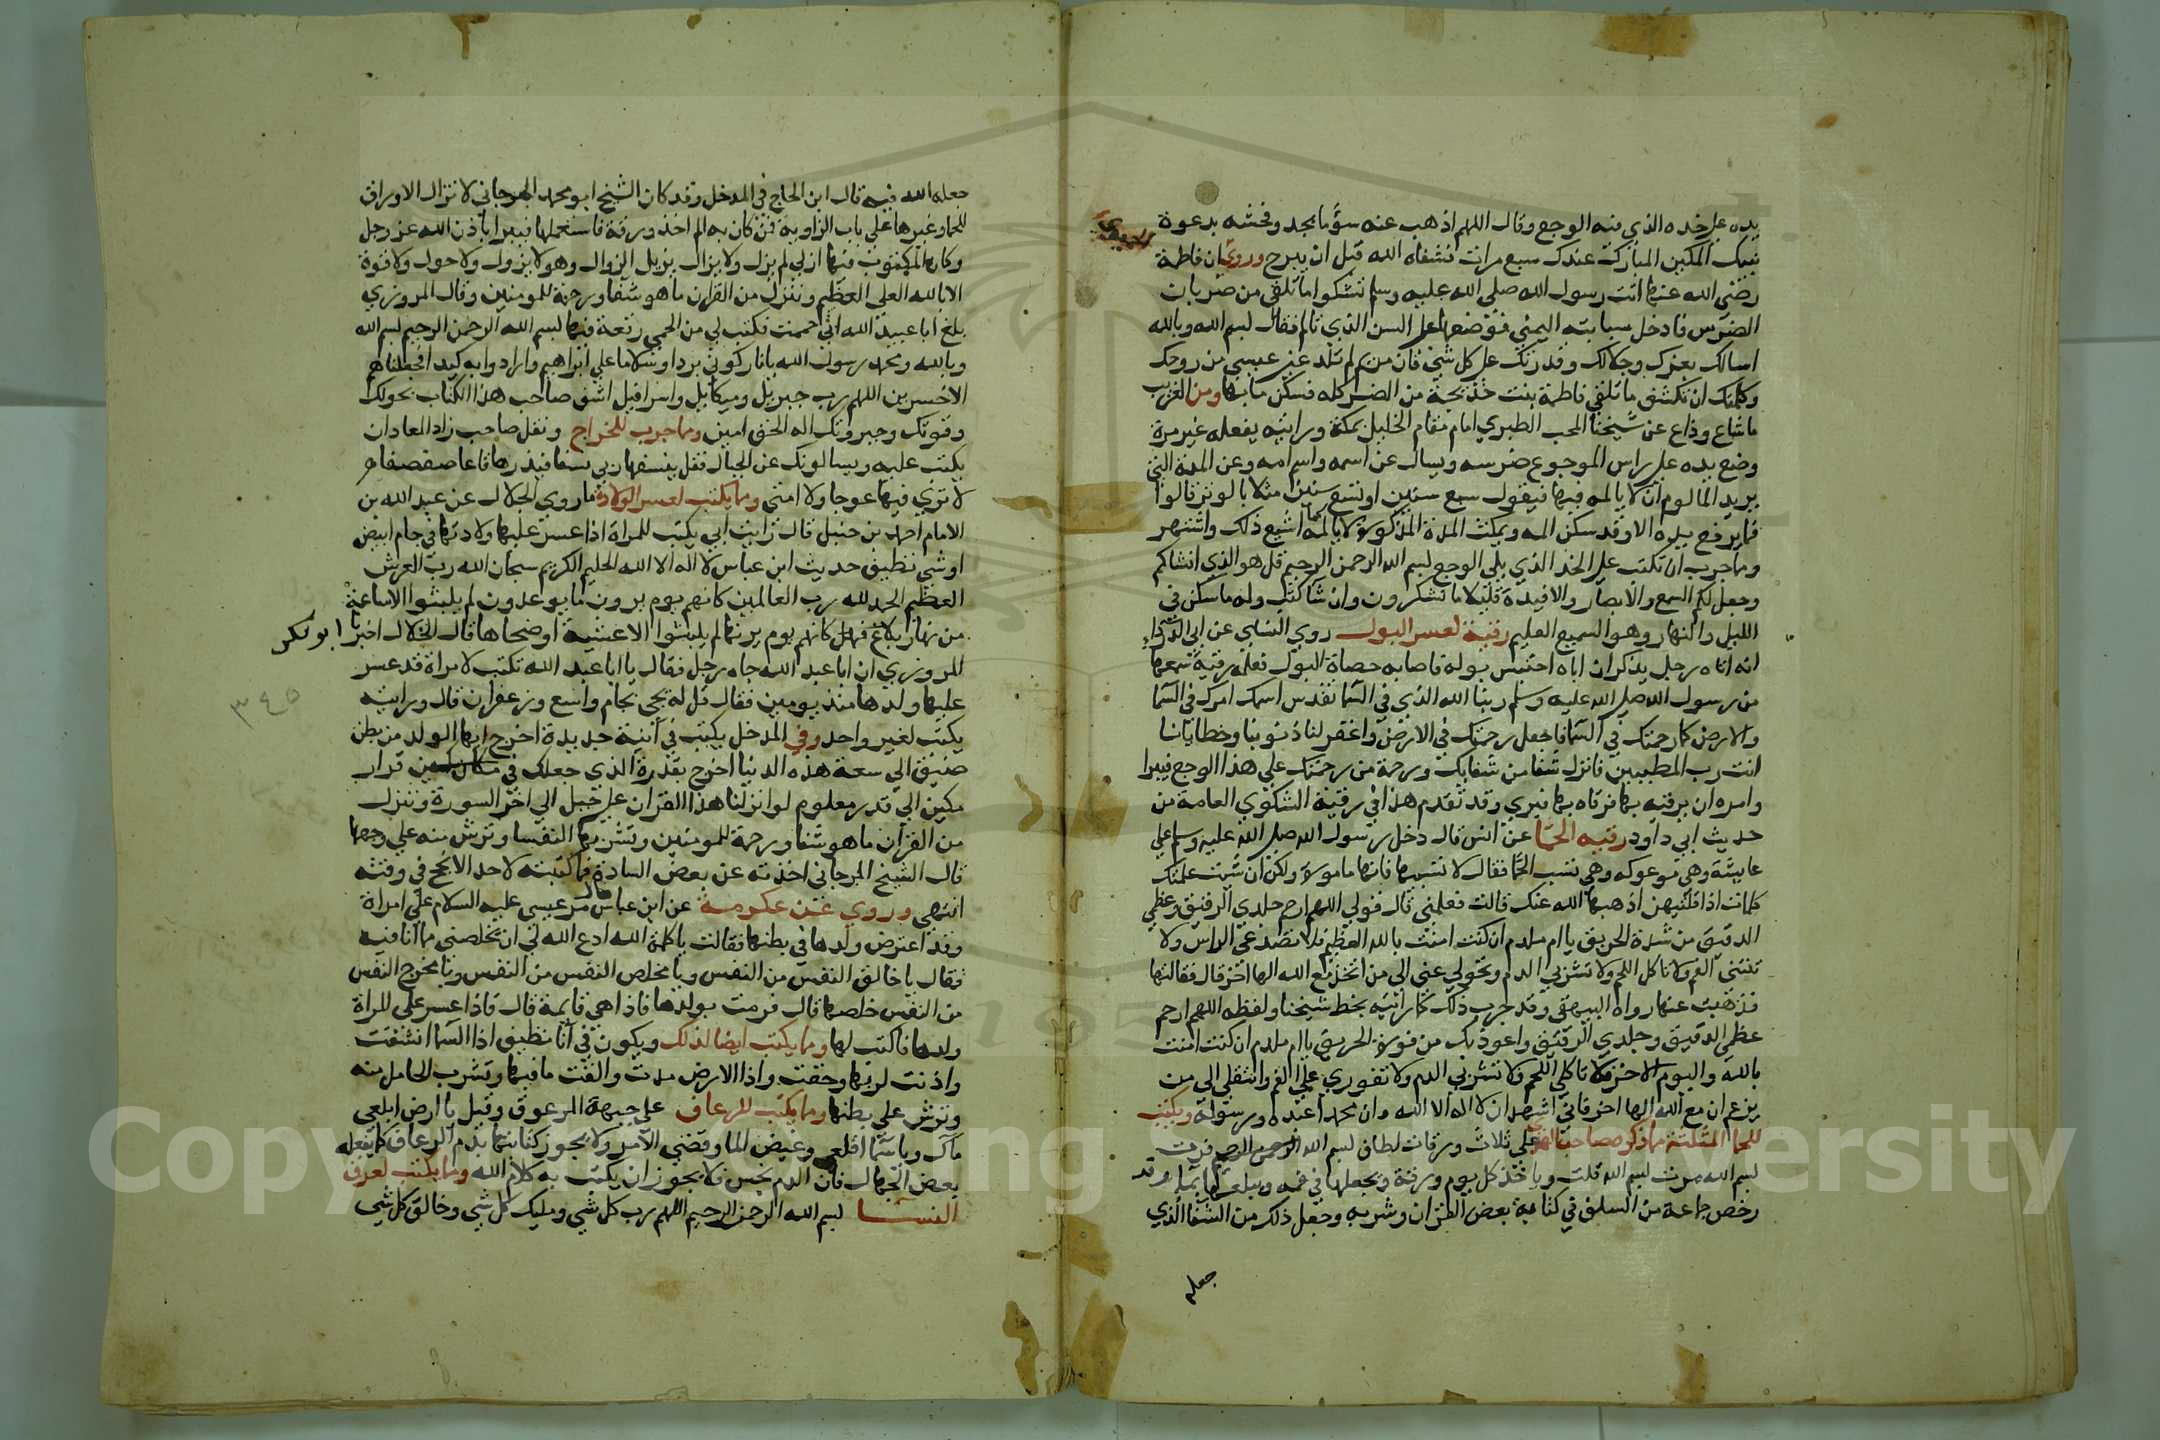 يده على خده الذي فيه الوجع وقال اللهم اذهب عنه سؤ ما يجد وفحشه بدعوة
نبيك المكين المبارك عندك سبع مرات فشفاه الله قبل ان يبرح وروى ان فاطمة
رضي الله عنها اتت رسول الله صلى الله عليه وسلم تشكوا ما تلقى من ضربان
الضرس فادخل سبابته اليمنى فوضعها على السن الذي تالم فقال بسم الله وبالله
اسالك بعزك وجلالك وقدرتك على كل شي فان مريم لم تلد غير عيسى من روحك
وكلمتك ان تكشف ما تلقي فاطمة بنت خديجة من الضر كله فسكن ما بها ومن الغريب
ما شاع وذاع عن شيخنا المحب الطبري امام مقام الخليل بمكة ورايته يفعله غير مرة
وضع يده على راس الموجوع ضرسه ويسال عن اسمه واسم امه وعن المدة التي
يريد المالوم ان لا يالمه فيها فيقول سبع سنين او تسع سنين مثلا بالوتر قالوا
فما يرفع يده الا وقد سكن المه ويمكث المدة المذكورة لا يالمه كما اشيع ذلك واشتهر
ومما جرب ان تكتب على الخد الذي يلي الوجع بسم الله الرحمن الرحيم قل هو الذي انشاكم
وجعل لكم السمع والابصار والافيدة قليلا ما تشكرون وان شا كتب وله ما سكن في
الليل والنهار وهو السميع العليم رقية لعسر البول روي النساي عن ابي الدرداء
انه اتاه رجل يذكر ان اباه احتبس بوله فاصابه حصاة البول فعلمه رقية سمعها
من رسول الله صلى الله عليه وسلم ربنا الله الذي في السما تقدس اسمك امرك في السما
والارض كما رحمتك في السما فاجعل رحمتك في الارض واغفر لنا ذنوبنا وخطايانا
انت رب المطيبين فانزل شفا من شفايك ورحمة من رحمتك على هذا الوجع فيبرا
وامره ان يرقيه بها فرقاه بها فبري وقد تقدم هذا في رقية الشكوى العامة من
حديث ابي داود رقيه الحما عن انس قال دخل رسول الله صلى الله عليه وسلم على
عايشة وهي موعوكه وهي تسب الحما فقال لا تسبيها فانها مامورة ولكن ان شيت علمتك
كلمات اذا قلتيهن اذهبها الله عنك قالت فعلمني قال قولي اللهم ارحم جلدي الرقيق وعظمي
الدقيق من شدة الحريق يا ام ملدم ان كنت امنت بالله العظيم فلا تصدعي الراس ولا
تنتني الفم ولا تاكل اللحم ولا تشربي الدم وتحولي عني الى من اتخذ مع الله الها اخر قال فقالتها
فذهبت عنها رواه البيهقي وقد جرب ذلك كما رايته بخط شيخنا ولفظه اللهم ارحم
عظمي الدقيق وجلدي الرقيق واعوذ بك من فورة الحريق يا ام ملدم ان كنت امنت
بالله واليوم الاخر فلا تاكلي اللحم ولا تشربي الدم ولا تفوري على الفم وانتقلي الى من
يزعم ان مع الله الها اخر فاني اشهد ان لا اله الا الله وان محمدا عبده ورسوله ويكتب
للحما المثلثة مما ذكره صاحب الهدي على ثلاث ورقات لطاف بسم الله الرحمن الرحيم فرت
بسم الله مرت بسم الله قلت وياخذ كل يوم ورقة ويجعلها في فمه ويبلعها بماء وقد
رخص جماعة من السلف في كتابة بعض القران وشربه وجعل ذلك من الشفا الذي
جعله
جعله الله فيه قال ابن الحاج في المدخل وقد كان الشيخ ابو محمد المرجاني لا تزال الاوراق
للحما وغيرها على باب الزاوية فمن كان به الم اخذ ورقة فاستعملها فيبرا باذن الله عز وجل
وكان المكتوب فيها ازلي لم يزل ولا يزال يزيل الزوال وهو لا يزول ولا حول ولا قوة
الا بالله العلي العظيم وننزل من القران ما هو شفا ورحمة للمومنين وقال المروزي
بلغ ابا عبد الله اني حممت فكتب لي من الحمى رقعة فيها بسم الله الرحمن الرحيم بسم الله
وبالله ومحمد رسول الله يا نار كوني بردا وسلاما على ابراهيم وارادوا به كيدا فجعلناهم
الاخسرين اللهم رب جبريل وميكاييل واسرافيل اشف صاحب هذا الكتاب بحولك
وقوتك وجبروتك اله الحق امين ومما جرب للخراج ونقل صاحب زاد المعاد ان
يكتب عليه ويسالونك عن الجبال فقل ينسفها ربي نسفا فيذرها قاعا صفصفا
لا ترى فيها عوجا ولا امتي ومما يكتب لعسر الولادة ما روي الخلال عن عبد الله بن
الامام احمد بن حنبل قال رايت ابي يكتب للمراة اذا عسر عليها ولادتها في جام ابيض
او شي نظيف حديث ابن عباس لا اله الا الله الحليم الكريم سبحان الله رب العرش
العظيم الحمد لله رب العالمين كانهم يوم يرون ما يوعدون لم يلبثوا الا ساعة
من نهار بلاغ فهل كانهم يوم يرونها لم يلبثوا الا عشية او ضحاها قال الخلال اخبرنا ابو بكر
المروزي ان ابا عبد الله جاه رجل فقال يا ابا عبد الله تكتب لامراة قد عسر
عليها ولدها منذ يومين فقال قل له يجي بجام واسع وزعفران قال ورايته
يكتب لغير واحد وفي المدخل يكتب في انية جديدة اخرج ايها الولد من بطن
ضيق الى سعة هذه الدنيا اخرج بقدرة الذي جعلك في قرار
مكين الى قدر معلوم لو انزلنا هذا القران على جبل الى اخر السورة وننزل
من القران ما هو شفا ورحمة للمومنين وتشربها النفسا وترش منه على وجهها
قال الشيخ المرجاني اخذته عن بعض السادة فما كتبته لاحد الا نجح في وقته
انتهى وروي عن عكرمة عن ابن عباس قال مر عيسى عليه السلام على امراة
وقد اعترض ولدها في بطنها فقالت يا كلمة الله ادع الله لي ان يخلصني مما انا فيه
فقال يا خالق النفس من النفس ويا مخلص النفس من النفس ويا مخرج النفس
من النفس خلصها قال فرمت بولدها فاذا هي قايمة قال فاذا عسر على المراة
ولدها فاكتب لها ومما يكتب ايضا لذلك ويكون في انا نظيف اذا السما انشقت
واذنت لربها وحقت واذا الارض مدت والقت ما فيها وتشرب الحامل منه
وترش على بطنها ومما يكتب للرعاف على جبهة المرعوف وقيل يا ارض ابلعي
ماك ويا سما اقلعي وغيض الما وقضي الامر ولا يجوز كتابتها بدم الرعاف كما يفعله
بعض الجهال فان الدم نجس فلا يجوز ان يكتب به كلام الله ومما يكتب لعرق
النسا بسم الله الرحمن الرحيم اللهم رب كل شي ومليك كل شي وخالق كل شي
٣٤٥